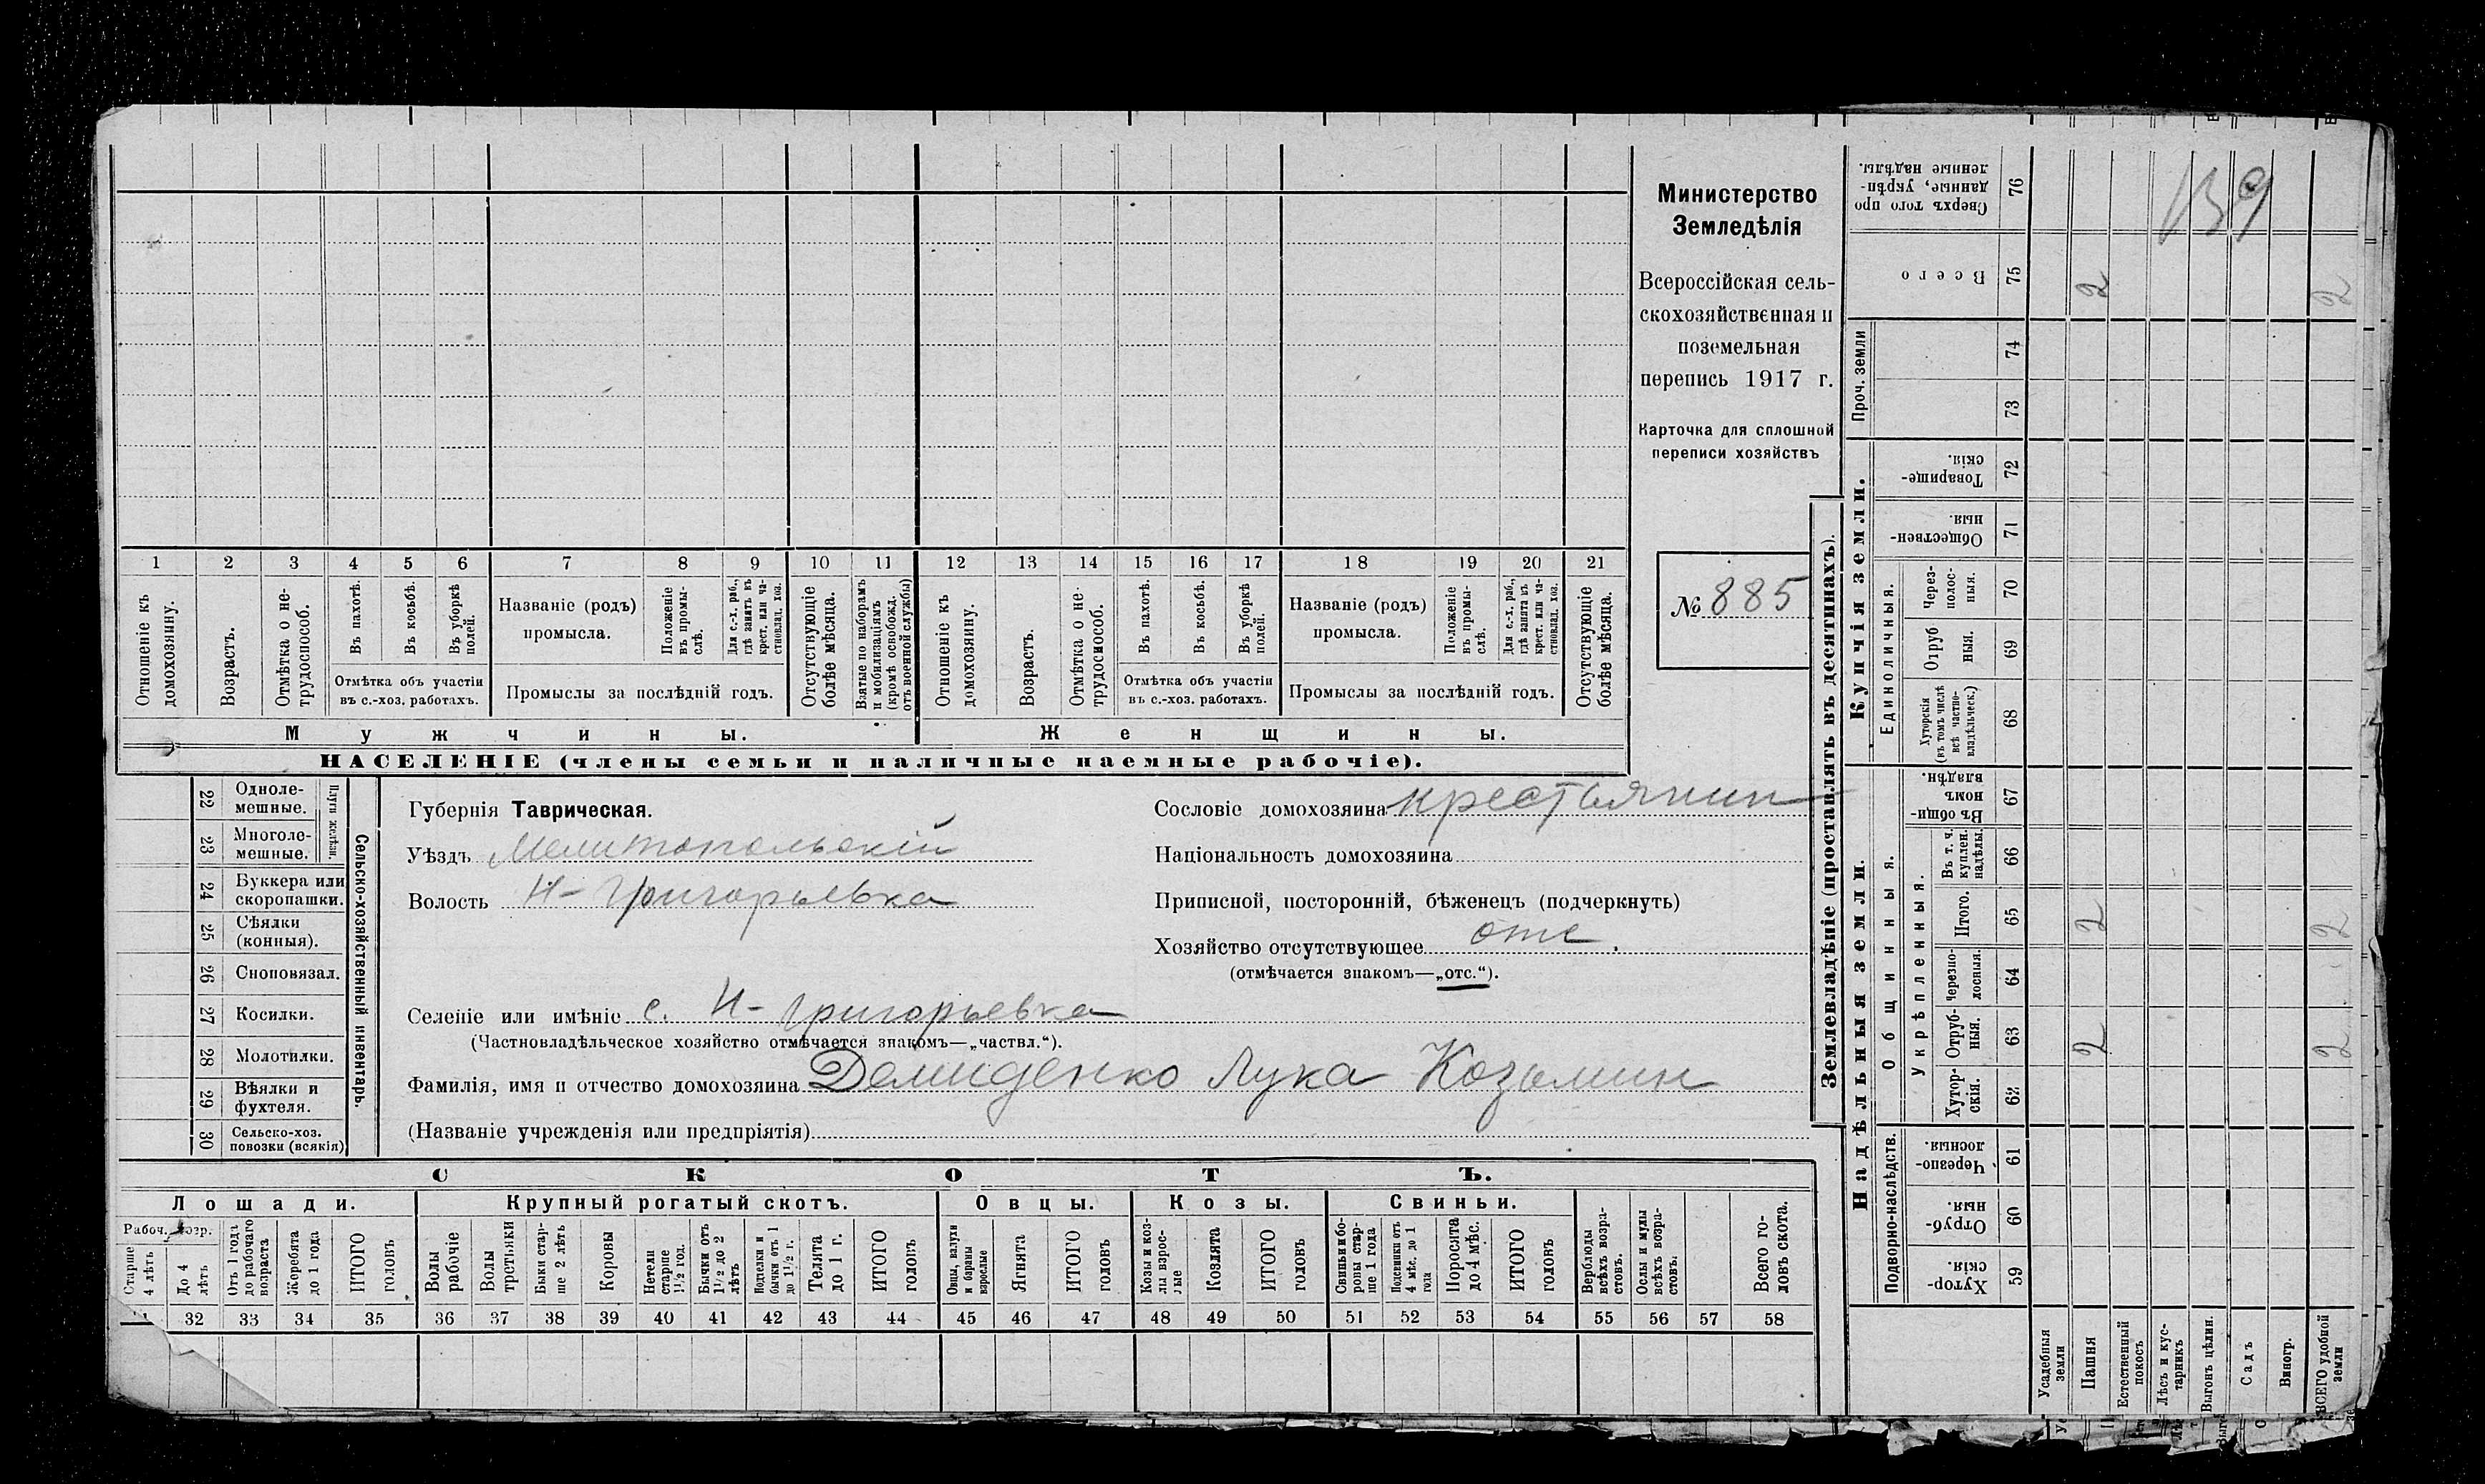 Министерство
Земледѣлія
Всероссійская сель-
скохозяйственная и
поземельная
перепись 1917 г.
Карточка для сплошной
переписи хозяйствъ
№ 885
1 2 3 4 5 6 7 8 9 10 11 12 13 14 15 16 17 18 19 20 21
Отношеніе къ домохозяину.
Возрастъ.
Отмѣтка о не-трудоспособ.
Въ пахотѣ.
Въ косьбѣ.
Въ уборкѣ полей.
Отмѣтка объ участіи
въ с.-хоз. работахъ.
Названіе (родъ)
промысла.
Положеніе въ промы-слѣ.
Для с.-х. раб., гдѣ занятъ въ крест. или ча-стновлад. хоз.
Промыслы за послѣдній годъ.
Отсутствующіе болѣе мѣсяца.
Взятые по наборамъ и мобилизаціямъ (кромѣ освобожд. отъ военной службы)
Отношеніе къ домохозяину.
Возрастъ.
Отмѣтка о не-трудоспособ.
Въ пахотѣ.
Въ косьбѣ.
Въ уборкѣ полей.
Отмѣтка объ участіи
въ с.-хоз. работахъ.
Названіе (родъ)
промысла.
Положеніе въ промы-слѣ.
Для с.-х. раб., гдѣ занята въ крест. или ча-стновлад. хоз.
Промыслы за послѣдній годъ.
Отсутствующіе болѣе мѣсяца.
Мужчины.
Женщины.
НАСЕЛЕНІЕ (члены семьи и наличные наемные рабочіе).
22 Одноле-мешные.
23 Многоле-мешные.
Плуги желѣзн.
24 Буккера или скоропашки.
25 Сѣялки (конныя).
26 Сноповязал.
27 Косилки.
28 Молотилки.
29 Вѣялки и фухтеля.
30 Сельско-хоз. повозки (всякія)
Сельско-хозяйственный инвентарь.
Губернія Таврическая.
Уѣздъ Мелитопольскій
Волость Н-Григорьевка
Сословіе домохозяина крестьянин
Національность домохозяина
Приписной, посторонній, бѣженецъ (подчеркнуть)
Хозяйство отсутствующее отс.
(отмѣчается знакомъ—„отс.“).
Селеніе или имѣніе с. Н-Григорьевка
(Частновладѣльческое хозяйство отмѣчается знакомъ—„частвл.“).
Фамилія, имя и отчество домохозяина Демиденко Лука Козьмин
(Названіе учрежденія или предпріятія)
СКОТЪ.
Лошади.
Крупный рогатый скотъ.
Овцы.
Козы.
Свиньи.
Рабоч. возр.
Старше 4 лѣтъ
До 4 лѣтъ
Отъ 1 года до рабочаго возраста
Жеребята до 1 года
ИТОГО головъ
Волы рабочіе
Волы третьяки
Быки стар-ше 2 лѣтъ
Коровы
Нетели старше 1 1/2 год.
Бычки отъ 1 1/2 до 2 лѣтъ
Подтелки и бычки отъ 1 до 1 1/2 г.
Телята до 1 г.
ИТОГО головъ
Овцы, валухи и бараны взрослые
Ягнята
ИТОГО головъ
Козы и коз-лы взрос-лые
Козлята
ИТОГО головъ
Свиньи и бо-ровы стар-ше 1 года
Подсвинки отъ 4 мѣс. до 1 года
Поросята до 4 мѣс.
ИТОГО головъ
Верблюды всѣхъ возра-стовъ.
Ослы и мулы всѣхъ возра-стовъ.
Всего го-ловъ скота.
32 33 34 35 36 37 38 39 40 41 42 43 44 45 46 47 48 49 50 51 52 53 54 55 56 57 58
Землевладѣніе (проставлять въ десятинахъ).
Сверхъ того про-данные, укрѣп-ленные надѣлы. 76
139
Всего 75 2 2
Проч. земли
74
73
Купчія земли.
Товарище-скія. 72
Обществен-ныя. 71
Единоличныя.
Через-полос-ныя. 70
Отруб ныя. 69
Хуторскія (въ томъ числѣ всѣ частно-владѣльческ.) 68
Надѣльныя земли.
Общинныя.
Въ общи-номъ владѣн. 67
Укрѣпленныя.
Въ т. ч. куплен. надѣлы. 66
Итого. 65 2 2
Черезпо-лосныя. 64
Отруб-ныя. 63 2 2
Хутор-скія. 62
Подворно-наслѣдств.
Черезпо-лосныя. 61
Отруб-ныя. 60
Хутор-скія. 59
Усадебныя земли
Пашня
Естественный покосъ
Лѣсъ и кус-тарникъ
Выгонъ цѣлин.
Садъ
Виногр.
ВСЕГО удобной земли